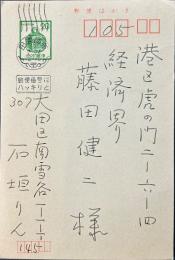 郵便はがき
105
港区虎の門二ー六ー四
経済界
藤田健二様
郵便番号は
ハッキリと
大田区南雪谷一ー一ー一
307
石垣りん
145